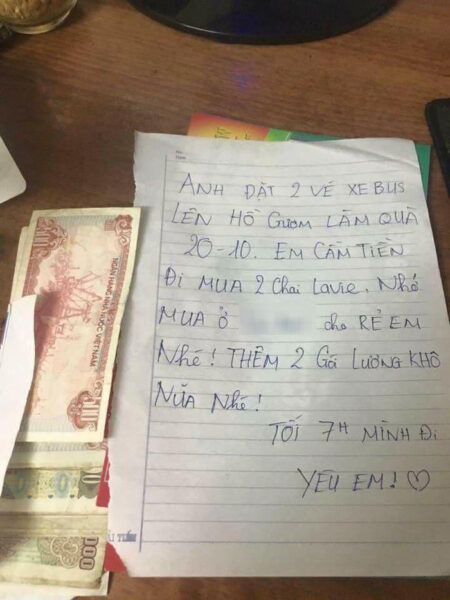 ANH ĐẶT 2 VÉ XE BUS
LÊN HỒ GƯƠM LÀM QUÀ
20-10. EM CẦM TIỀN
ĐI MUA 2 Chai Lavie. Nhớ
MUA Ở cho RẺ EM
Nhé! THÊM 2 Gói LƯƠNG KHÔ
NỮA Nhé!
TỐI 7H MÌNH ĐI
YÊU EM! ♡
NGÂN HÀNG NHÀ NƯỚC VIỆT NAM